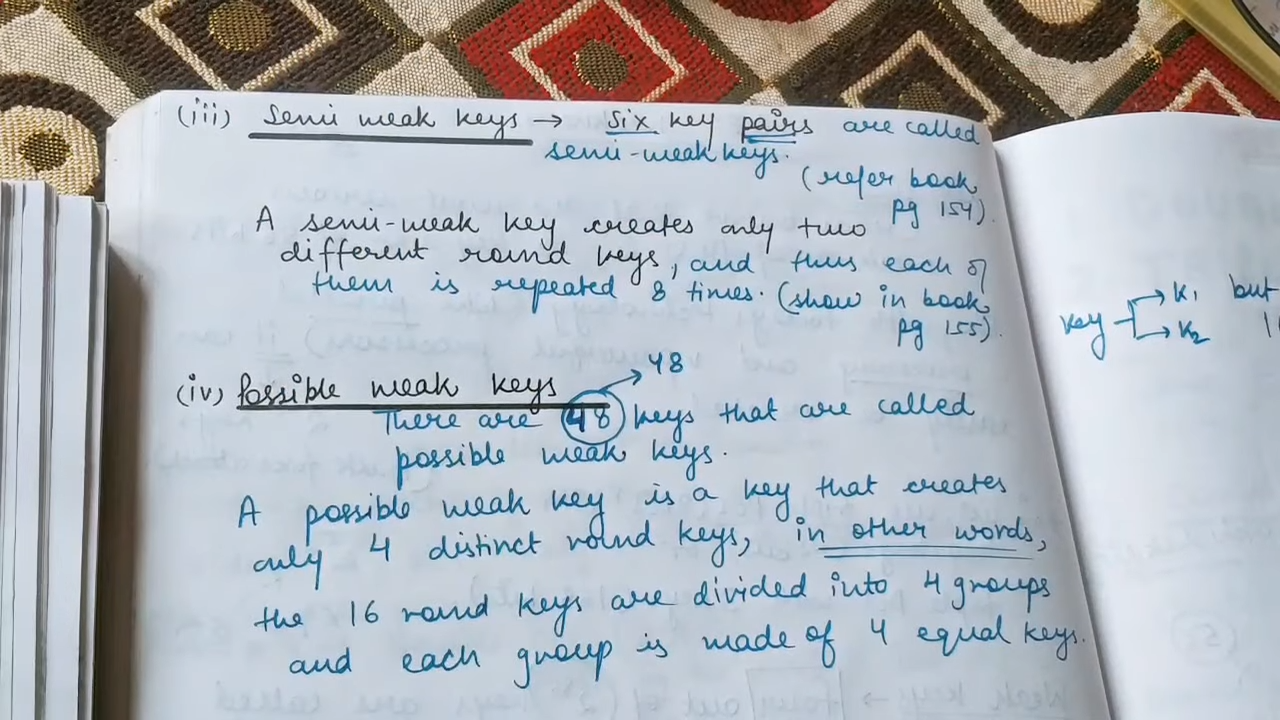 (iii) Semi weak keys → Six key pairs are called
semi-weak keys.
(refer book
pg 154).
A semi-weak key creates only two
different round keys, and thus each of
them is repeated 8 times. (show in book
pg 155).
48
(iv) Possible weak keys
There are 48 keys that are called
possible weak keys.
A possible weak key is a key that creates
only 4 distinct round keys, in other words,
the 16 round keys are divided into 4 groups
and each group is made of 4 equal keys.
key → K1 but
→ K2